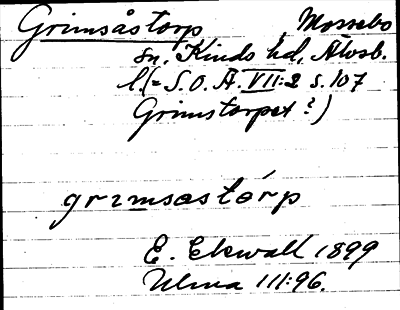 Grimsåstorp, Morsebo
sn, Kinds hd, Älvsb.
l. (= S. O. Ä. VII:2 s. 107
Grimstorpet?)
grimsastórp
E. Ekwall 1899
Ulma 111:96.